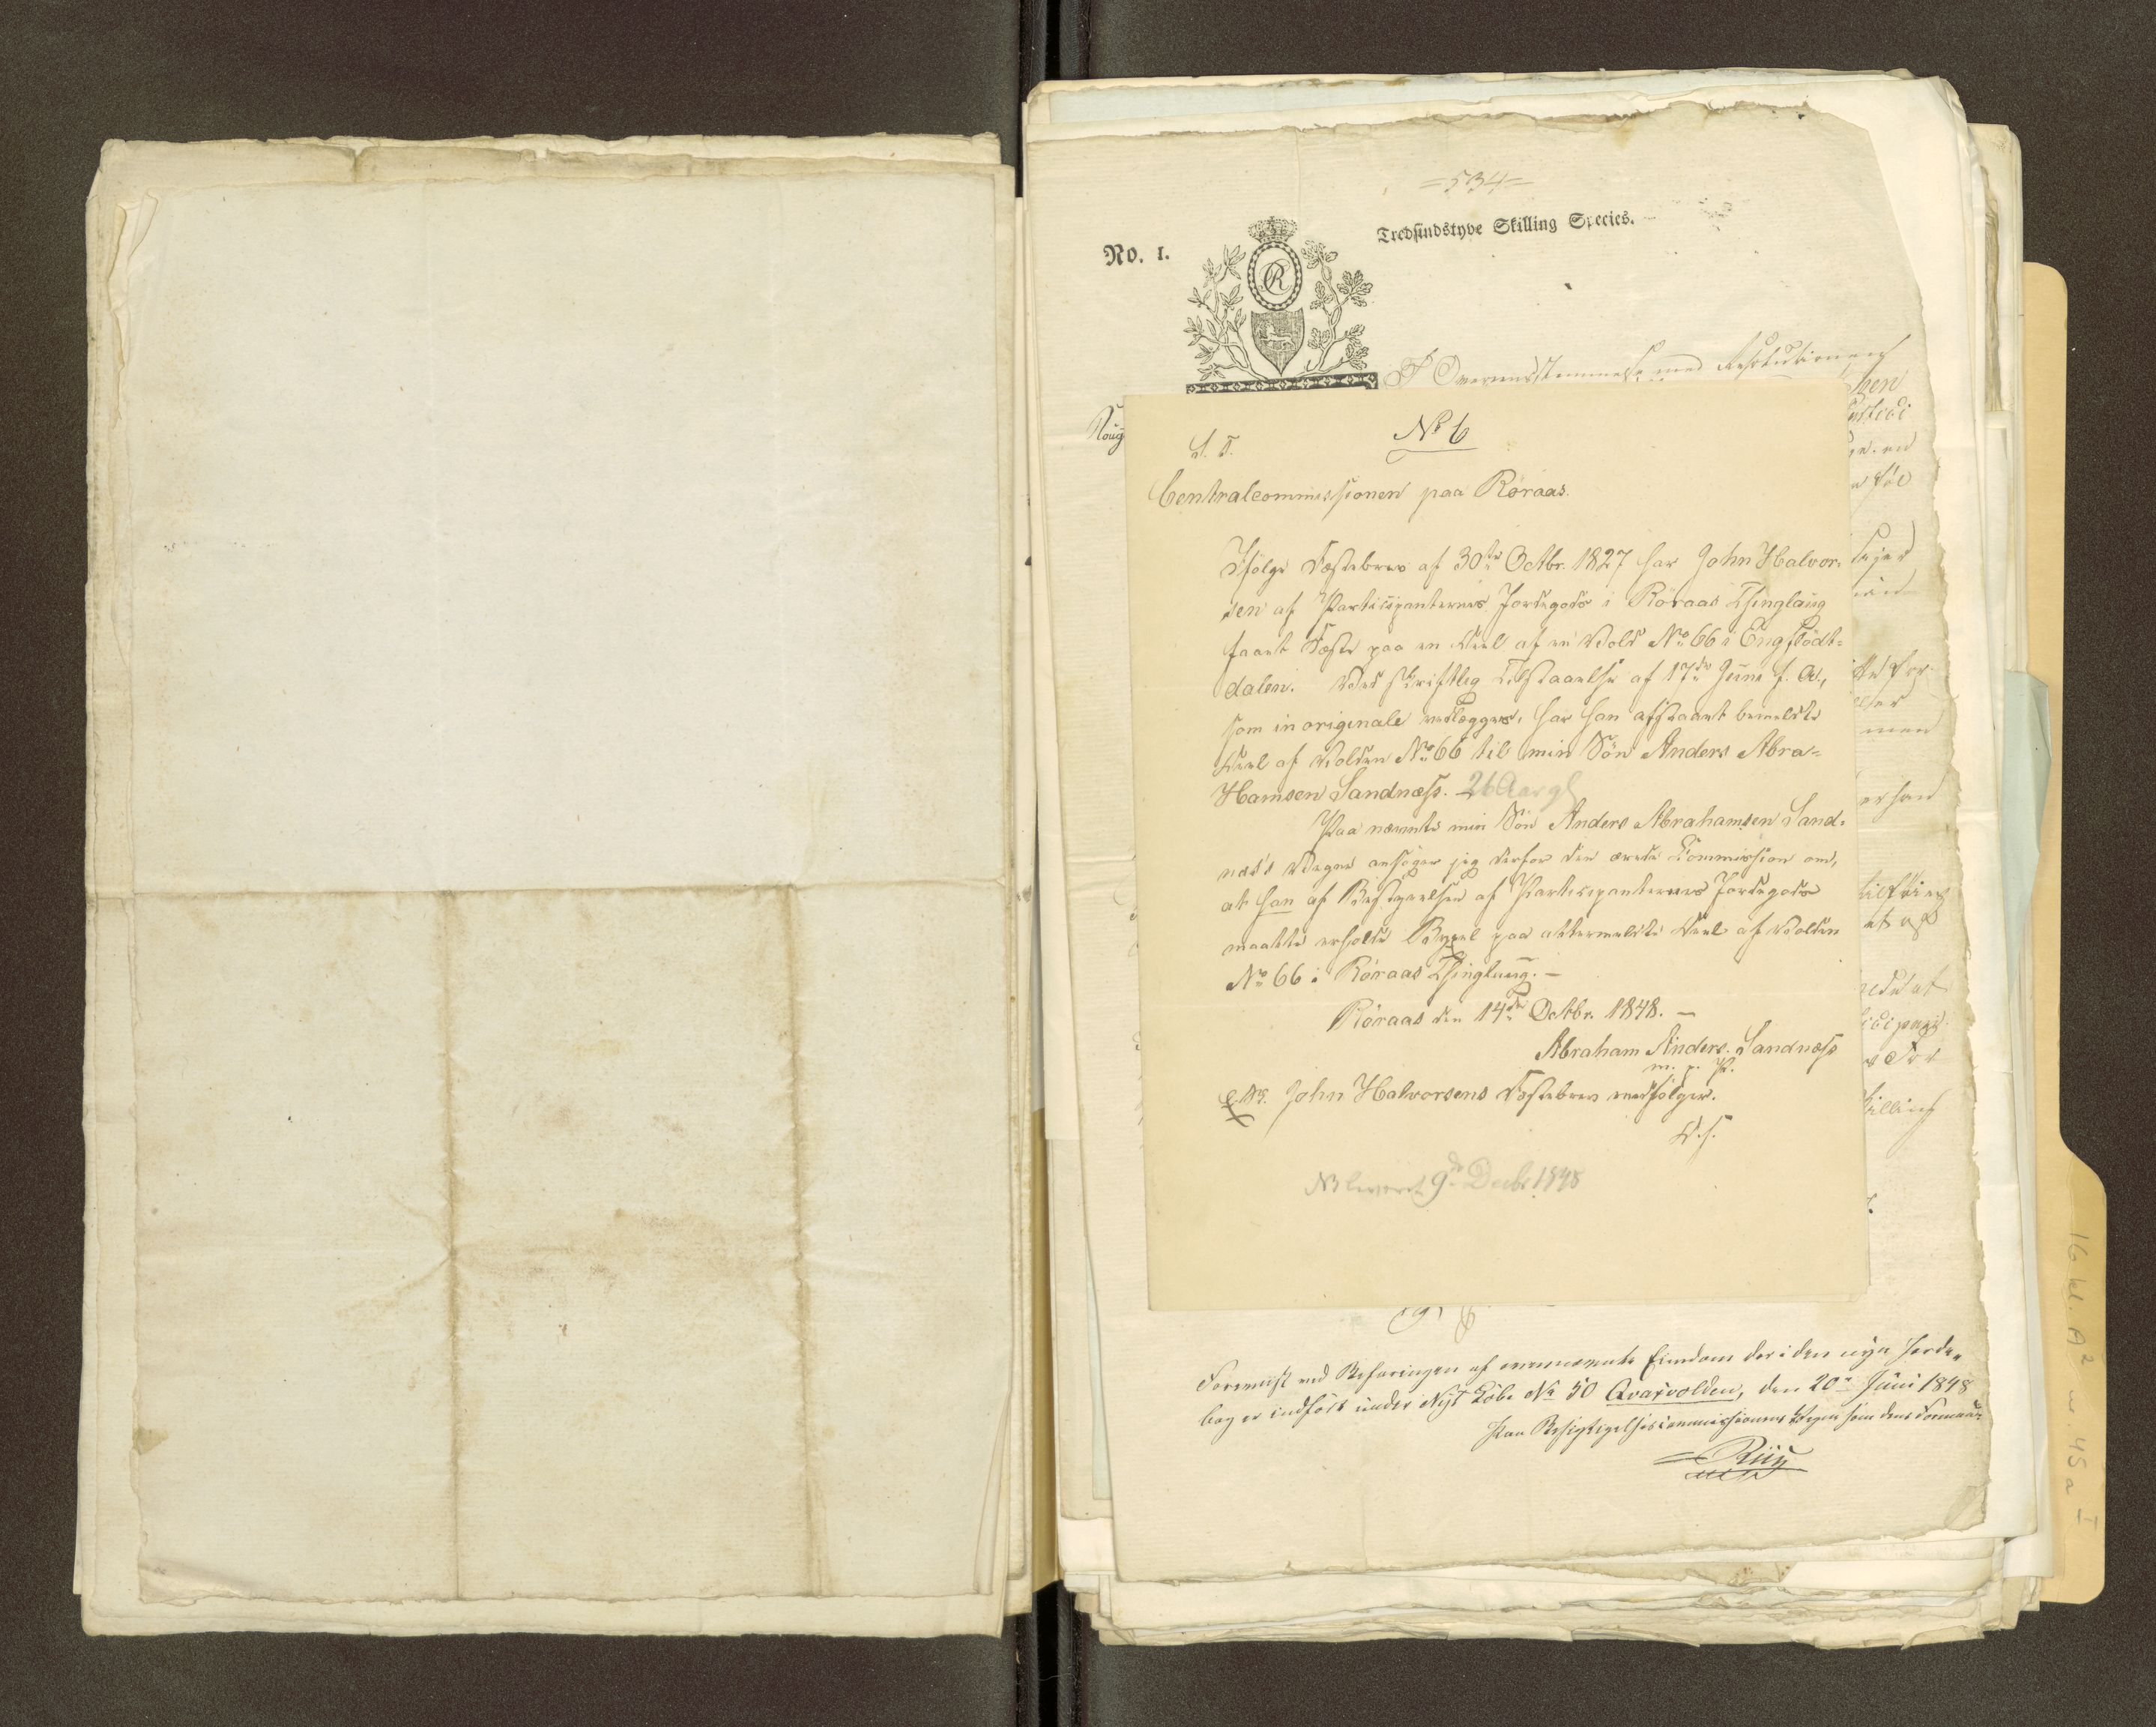 =534=
No. 1.
Tredsindstyve Skilling Species.
R
I Overensstemmelse med Resolutionens
No 6
S. T.
Centralcommissionen paa Röraas.
Ifölge Fæstebrev af 30te Octbr. 1827 har John Halvor-
sen af Participanternes Jordegods i Röraas Thinglaug
faaet Fæste paa en Deel af en Vold No 66 i Engflodt-
dalen. Ved skriftlig Tilstaaelse af 17de Juni f. A.,
som in originale vedlægges, har han afstaaet bemeldte
Deel af Volden No 66 til min Sön Anders Abra-
Hamsen Sandnæss. 26 Aar gl
Paa nævnte min Sön Anders Abrahamsen Sand-
næs's Vegne ansöger jeg derfor den ærede Commission om,
at han af Bestyrelsen af Participanternes Jordegods
maatte erholde Bygsel paa attermeldte Deel af Volden
No 66 i Röraas Thinglaug. —
Röraas den 14de Octbr. 1848. —
Abraham Anders. Sandnæss
m. p. P.
NB. John Halvorsens Fæstebrev medfölger.
D. S.
NB leveret 9de Decbr 1848
Foreviist ved Befaringen af ovennævnte Eiendom der i den nye Jorde-
bog er indfört under Nyt Löbe No 50 Qvasvolden, den 20de Juni 1848
paa Besigtigelsescommissionens Vegne som dens Formand
Riiy
16 kl. A2 w 45 a I